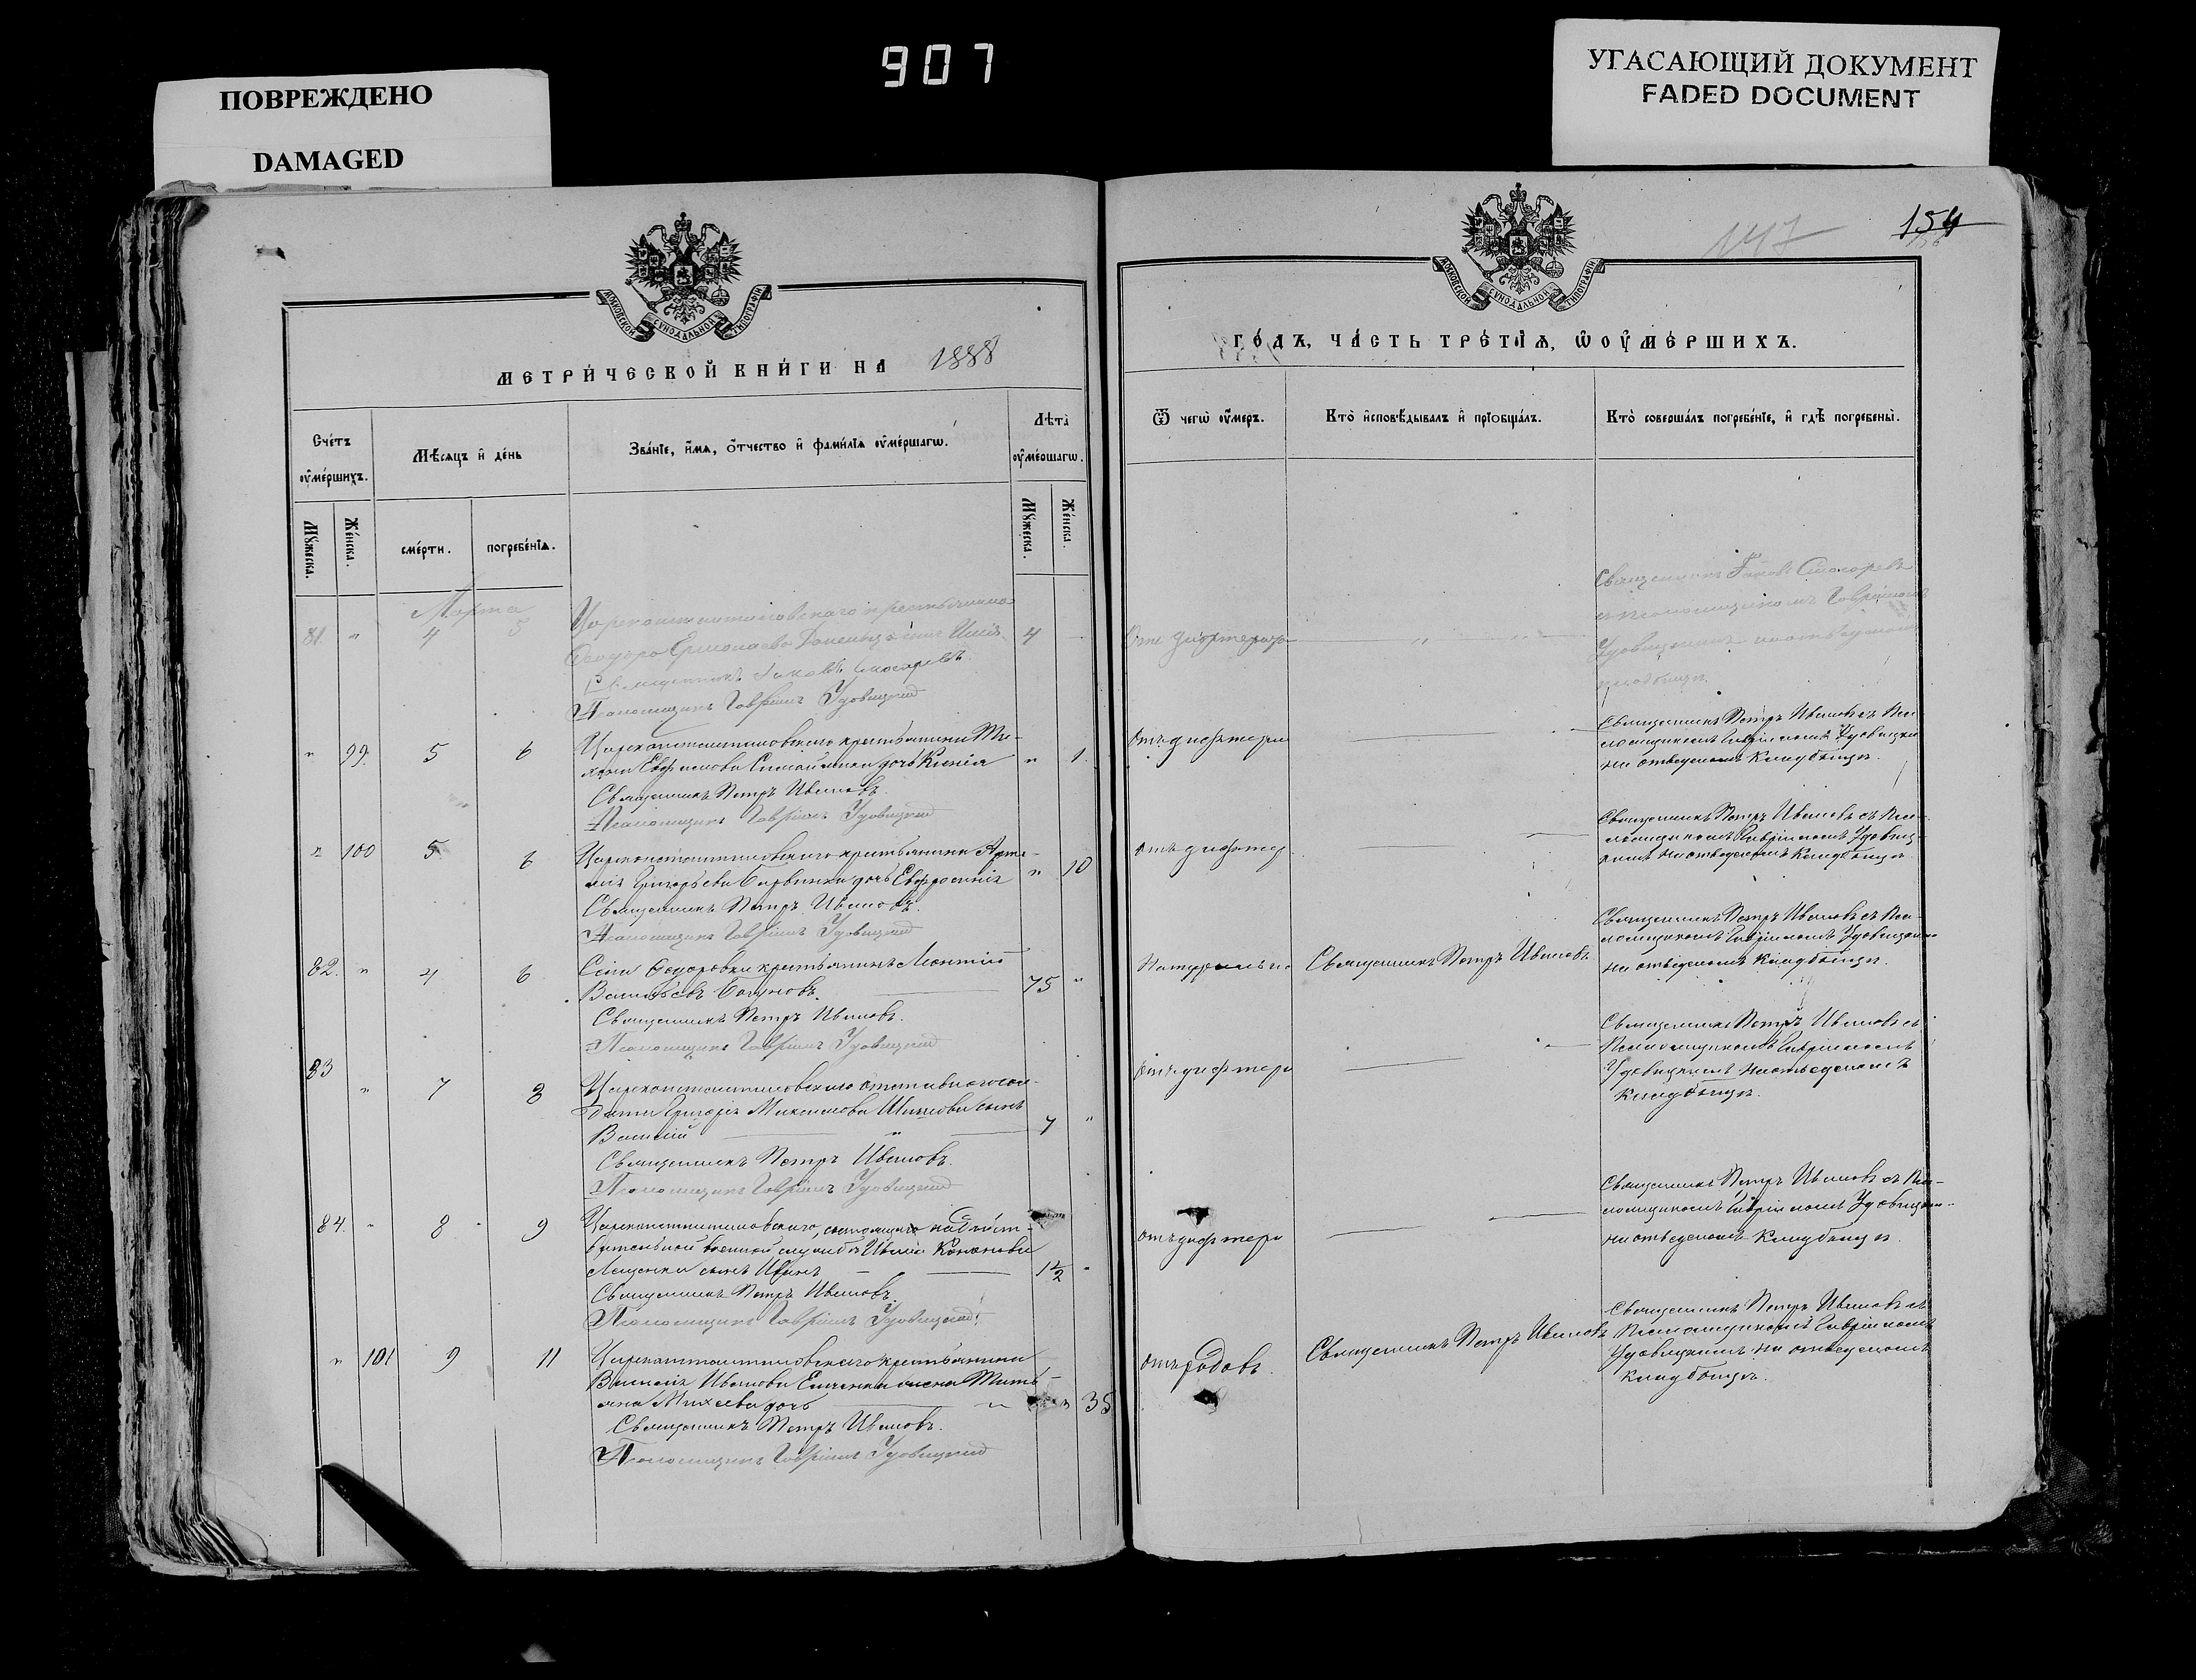 907
ПОВРЕЖДЕНО
DAMAGED
УГАСАЮЩИЙ ДОКУМЕНТ
FADED DOCUMENT
МОСКОВСКОЙ СѴНОДАЛЬНОЙ ТИПОГРАФІИ
МЕТРИ́ЧЕСКОЙ КНИ́ГИ НА 1888
Сче́тъ ᲂу҆ме́ршихъ.
Мѣ́сяцъ и҆ де́нь
Зва́нїе, и҆́мѧ, ѻ҆́тчество и҆ фами́лїѧ ᲂу҆ме́ршагѡ.
Лѣ́та ᲂу҆ме́ршагѡ.
Мꙋ́жеска.
Же́нска.
сме́рти.
погребе́нїѧ.
Мꙋ́жеска.
Же́нска.
Марта
81. " 4 5
Цареконстантиновскаго крестьянина
Ермолаева сынъ 4
Священникъ Іаковъ
Псаломщикъ Гавріилъ Удовицкій
" 99. 5 6
Цареконстантиновскаго крестьянина Ти-
хона Евфимова дочь Ксенія " 1.
Священникъ Петръ Ивановъ.
Псаломщикъ Гавріилъ Удовицкій
" 100 5 6
Цареконстантиновскаго крестьянина Арте-
мія Григорьева дочь Евфросинія " 10
Священникъ Петръ Ивановъ.
Псаломщикъ Гавріилъ Удовицкій
82. " 4 6
Села Федоровки крестьянинъ Леонтій
Васильевъ 75 "
Священникъ Петръ Ивановъ.
Псаломщикъ Гавріилъ Удовицкій
83 " 7 8
Цареконстантиновскаго отставного сол-
дата Григорія Максимова сынъ
Василій " 7 "
Священникъ Петръ Ивановъ.
Псаломщикъ Гавріилъ Удовицкій
84. " 8 9
Цареконстантиновскаго, состоящаго на дѣйст-
вительной военной службѣ Кононова
сынъ Иванъ 1½
Священникъ Петръ Ивановъ.
Псаломщикъ Гавріилъ Удовицкій
" 101 9 11
Цареконстантиновскаго крестьянина
Василія Иванова жена Тать-
яна Михеева дочь " 35
Священникъ Петръ Ивановъ.
Псаломщикъ Гавріилъ Удовицкій
147
154
МОСКОВСКОЙ СѴНОДАЛЬНОЙ ТИПОГРАФІИ
ГО́ДЪ, ЧА́СТЬ ТРЕ́ТЇѦ, Ѡ҆ ᲂУ҆МЕ́РШИХЪ.
Ѿ чегѡ̀ ᲂу҆́меръ.
Кто̀ и҆сповѣ́дывалъ и҆ прїѡбща́лъ.
Кто̀ соверша́лъ погребе́нїе, и҆ гдѣ̀ погребены̀.
Отъ дифтерита
Священникъ Іаковъ
съ псаломщикомъ Гавріиломъ
Удовицкимъ на отведенномъ
кладбищѣ.
Отъ дифтери
Священникъ Петръ Ивановъ съ Пса-
ломщикомъ Гавріиломъ Удовицким
на отведеномъ кладбищѣ.
Отъ дифтер
Священникъ Петръ Ивановъ съ Пса-
ломщикомъ Гавріиломъ Удовиц-
кимъ на отведеномъ кладбищѣ
Натурально
Священникъ Петръ Ивановъ
Священникъ Петръ Ивановъ съ Пса-
ломщикомъ Гавріиломъ Удовицкимъ
на отведеномъ кладбищѣ.
Отъ дифтери
Священникъ Петръ Ивановъ съ
Псаломщикомъ Гавріиломъ
Удовицкимъ на отведеномъ
кладбищѣ.
Отъ дифтери
Священникъ Петръ Ивановъ съ Пса-
ломщикомъ Гавріиломъ Удовицким
на отведеномъ кладбищѣ.
Отъ родовъ.
Священникъ Петръ Ивановъ
Священникъ Петръ Ивановъ съ
Псаломщикомъ Гавріиломъ
Удовицкимъ на отведеномъ
кладбищѣ.